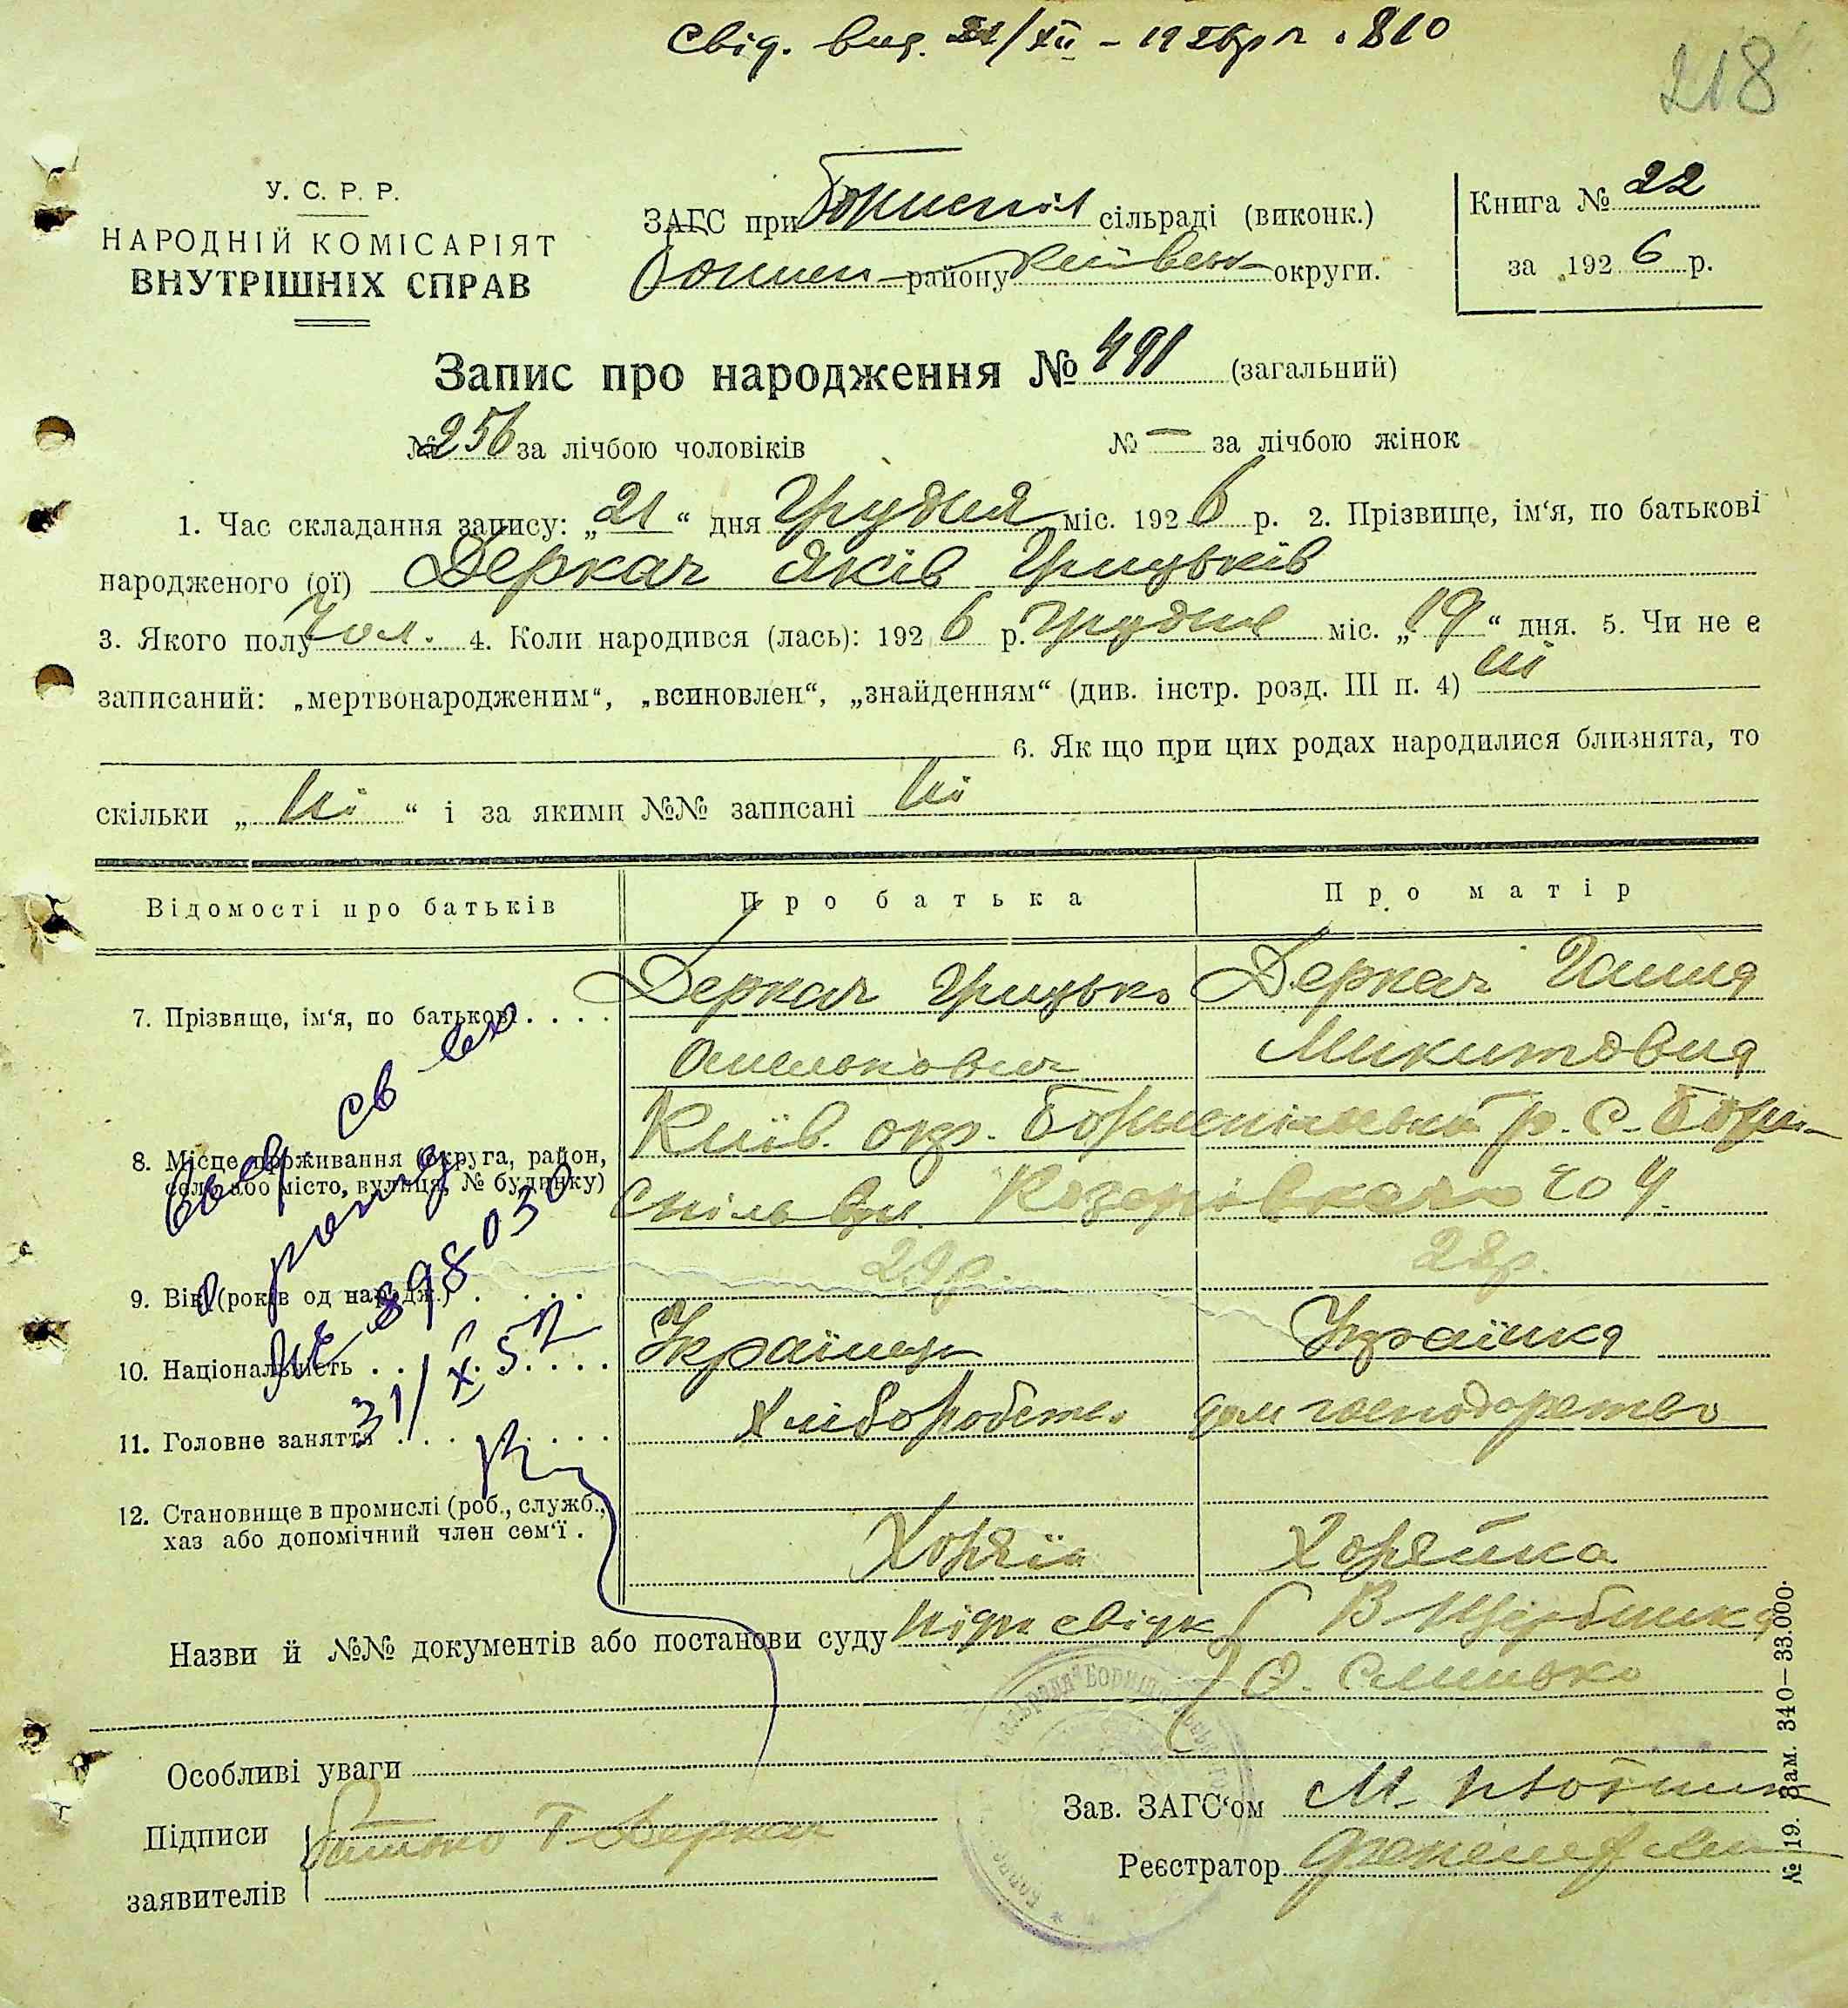 Свід. вид. 21/XII – 1926 р № 810
218
У. С. Р. Р.
НАРОДНІЙ КОМІСАРІЯТ
ВНУТРІШНІХ СПРАВ
ЗАГС при Бориспіл сільраді (виконк.)
району Київськ округи.
Книга № 22
за 1926 р.
Запис про народження № 491 (загальний)
№ 256 за лічбою чоловіків № — за лічбою жінок
1. Час складання запису: „21“ дня Грудня міс. 1926 р. 2. Прізвище, ім‘я, по батькові
народженого (ої) Деркач Яків Грицьків
3. Якого полу Чол. 4. Коли народився (лась): 1926 р. Грудня міс. „19“ дня. 5. Чи не є
записаний: „мертвонародженим“, „всиновлен“, „знайденням“ (див. інстр. розд. III п. 4) ні
6. Як що при цих родах народилися близнята, то
скільки „ні“ і за якими №№ записані ні
Відомості про батьків Про батька Про матір
7. Прізвище, ім‘я, по батькові . . . . Деркач Грицько Деркач Ганна
Омелькович Микитовна
8. Місце проживання (округа, район, Київ. окр. Бориспільський р. С. Бори-
село або місто, вулиця, № будинку) спіль вул.
9. Вік (років од народж.) . . . . 29 р. 28 р.
10. Національність . . . . . . Українець Українка
11. Головне заняття . . . . . . Хліборобство дом господарство
12. Становище в промислі (роб., служб.,
хаз або допомічний член сем‘ї . Хозяїн Хозяйка
св
№ 898030
31/X. 52
Назви й №№ документів або постанови суду Підп свідк В. Щербинка
О.
Особливі уваги
Підписи Батько Г Деркач
заявителів
Зав. ЗАГС‘ом М.
Реєстратор
№ 19. Зам. 340—33.000.